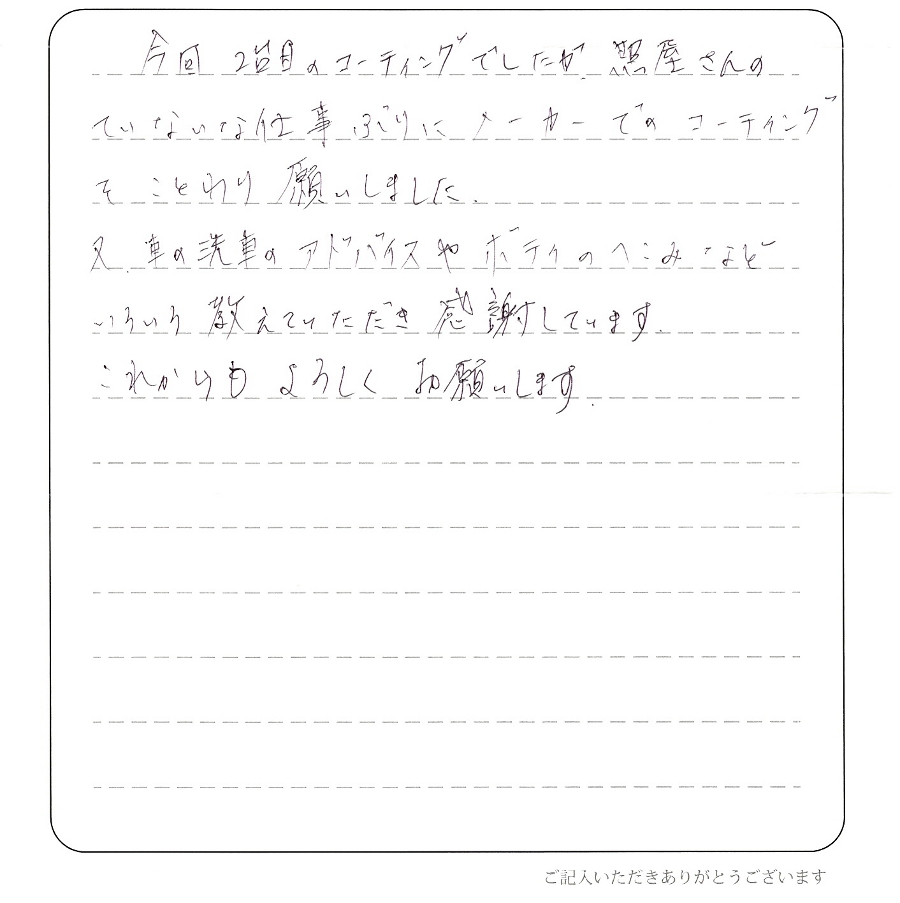 今回 2台目のコーティングでしたが、磨屋さんの
ていねいな仕事ぶりに メーカーでのコーティング
を ことわり 願いしました。
又、車の洗車のアドバイスや ボディのへこみ など
いろいろ 教えていただき 感謝しています。
これからも よろしく お願いします。
ご記入いただきありがとうございます